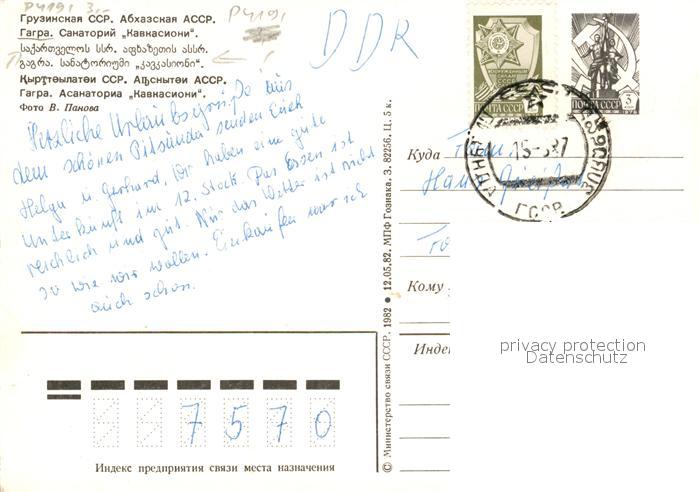 P4191 3,-
P4191
Грузинская ССР. Абхазская АССР.
Гагра. Санаторий „Кавкасиони“.
საქართველოს სსრ. აფხაზეთის ასსრ.
გაგრა. სანატორიუმი „კავკასიონი“.
Қырҭтәылатәи ССР. Аҧснытәи АССР.
Гагра. Асанаториа „Кавкасиони“.
Фото В. Панова
DDR
Herzliche Urlaubsgrüße aus
dem schönen Pitsunda senden Euch
Helga u. Gerhard. Wir haben eine gute
Unterkunft im 12. Stock. Das Essen ist
reichlich und gut. Nur das Wetter ist nicht
so wie wir wollen. Einkaufen war ich
auch schon.
ПОЧТА СССР
ПОЧТА СССР 3
ГССР
Куда
Кому
Инде
privacy protection
Datenschutz
© Министерство связи СССР. 1982 • 12.05.82. МПФ Гознака. З. 82256. Ц. 5 к.
7570
Индекс предприятия связи места назначения